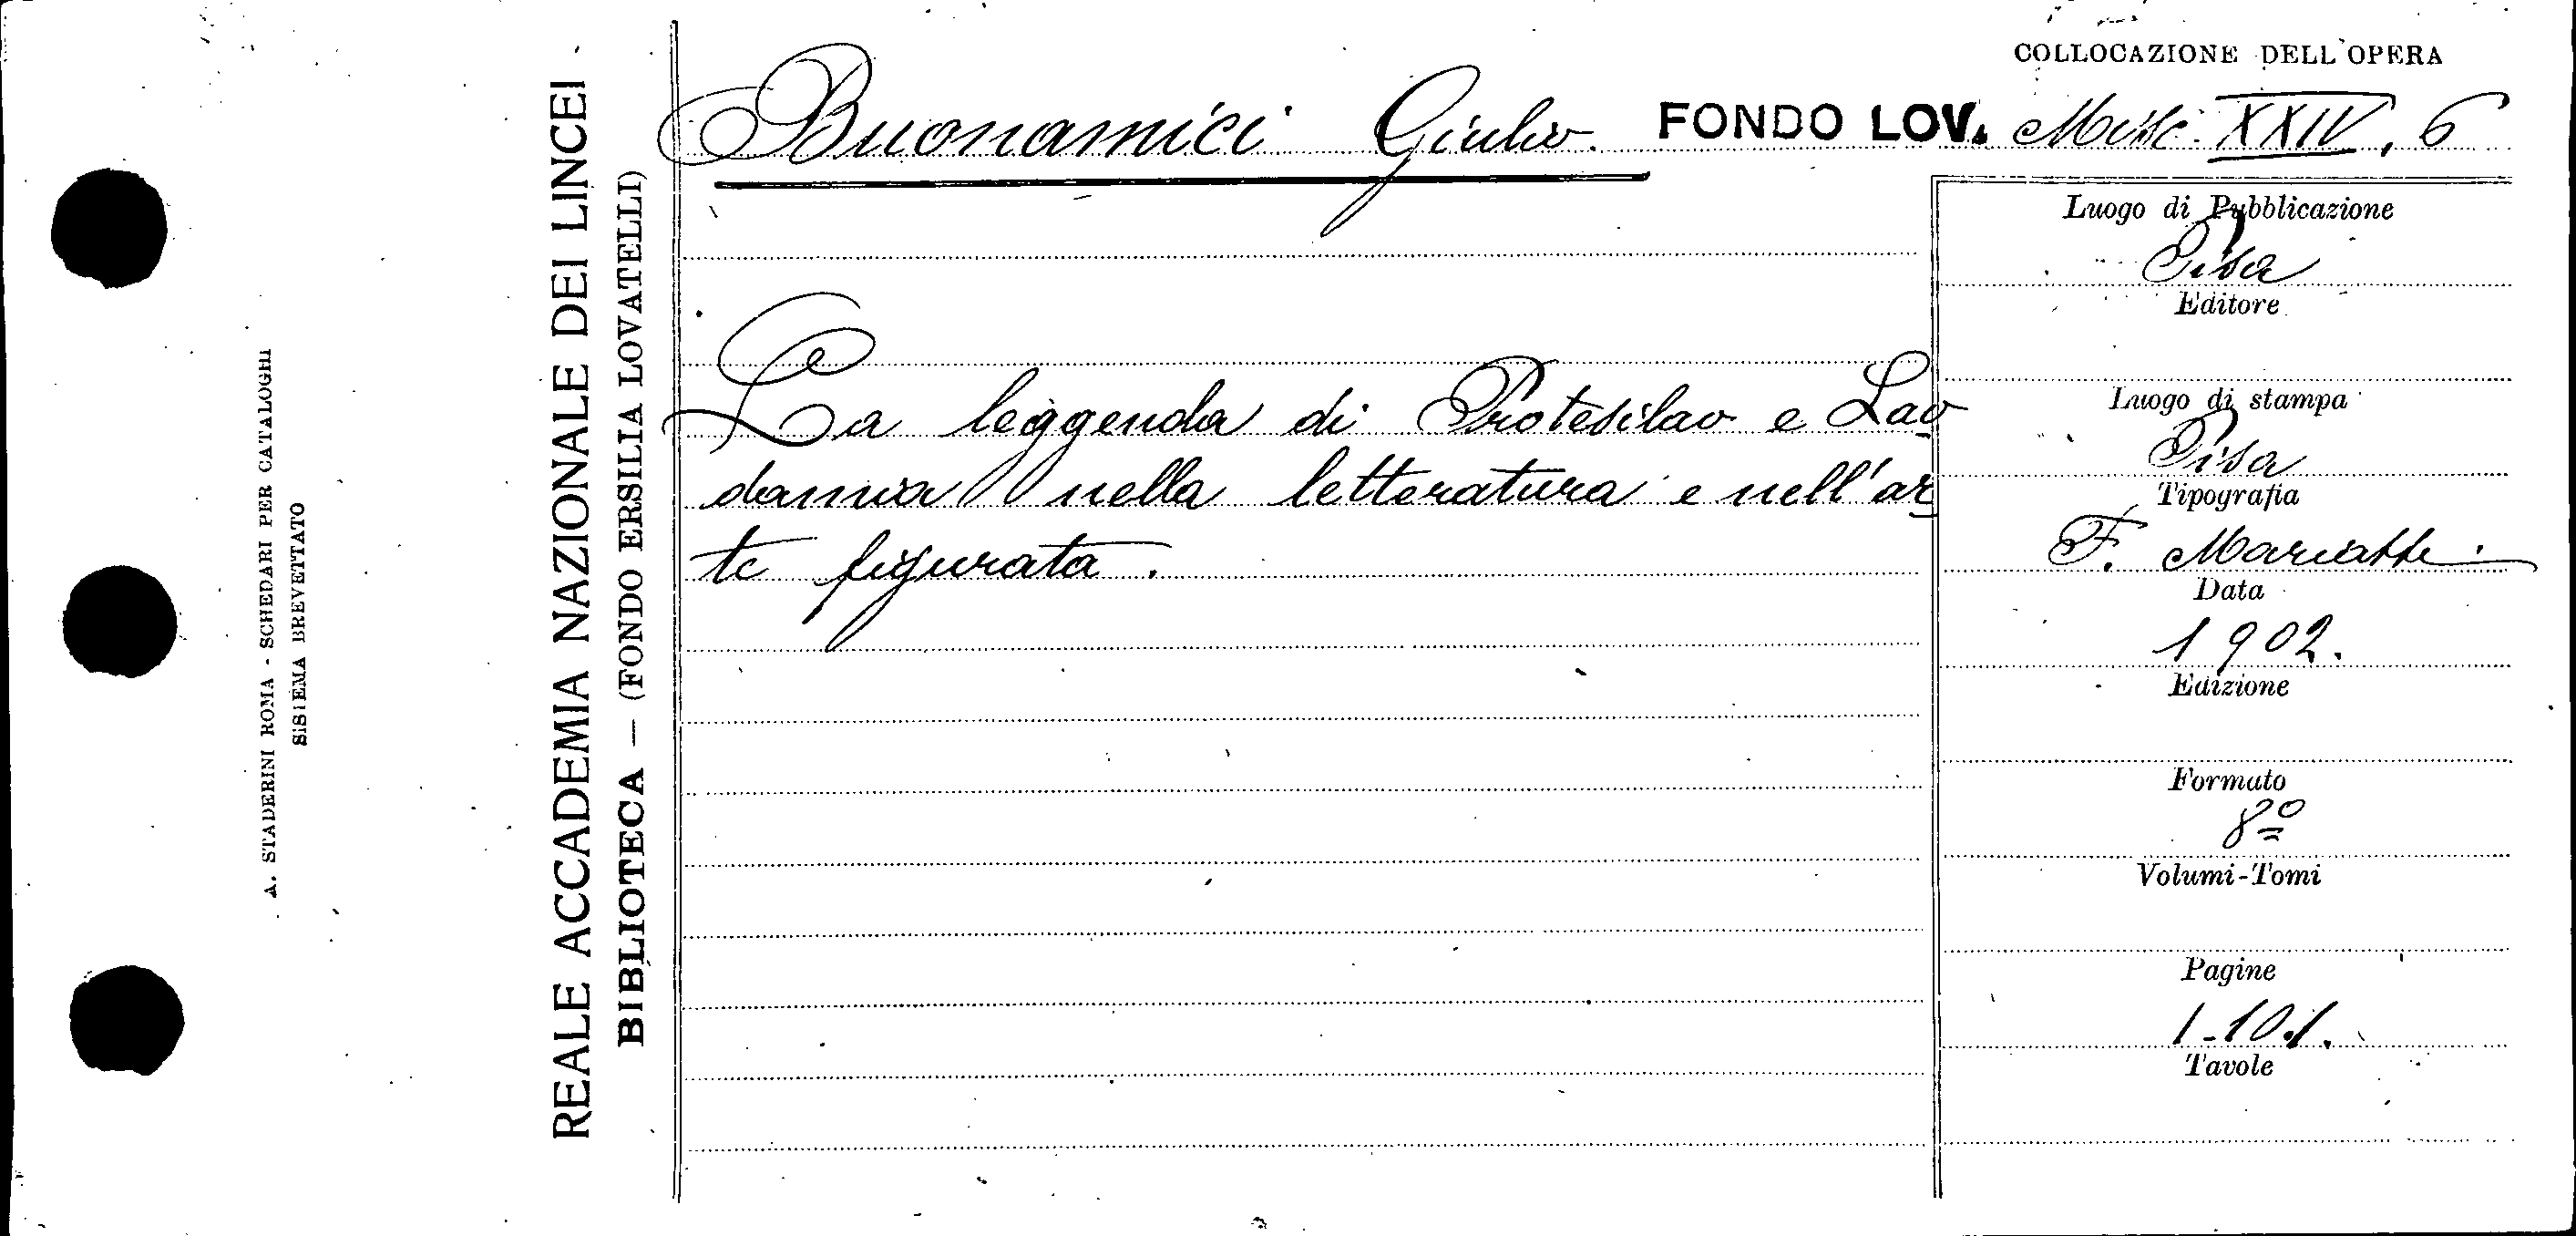 A. STADERINI ROMA - SCHEDARI PER CATALOGHI
SISTEMA BREVETTATO
REALE ACCADEMIA NAZIONALE DEI LINCEI
BIBLIOTECA — (FONDO ERSILIA LOVATELLI)
COLLOCAZIONE DELL'OPERA
Buonamici Giulio. FONDO LOV. Misc. XXIV, 6
La leggenda di Protesilao e Lao
damia nella letteratura e nell'ar
te figurata.
Luogo di Pubblicazione
Pisa
Editore
Luogo di stampa
Pisa
Tipografia
F. Mariotti.
Data
1902.
Edizione
Formato
8º
Volumi-Tomi
Pagine
1-101.
Tavole